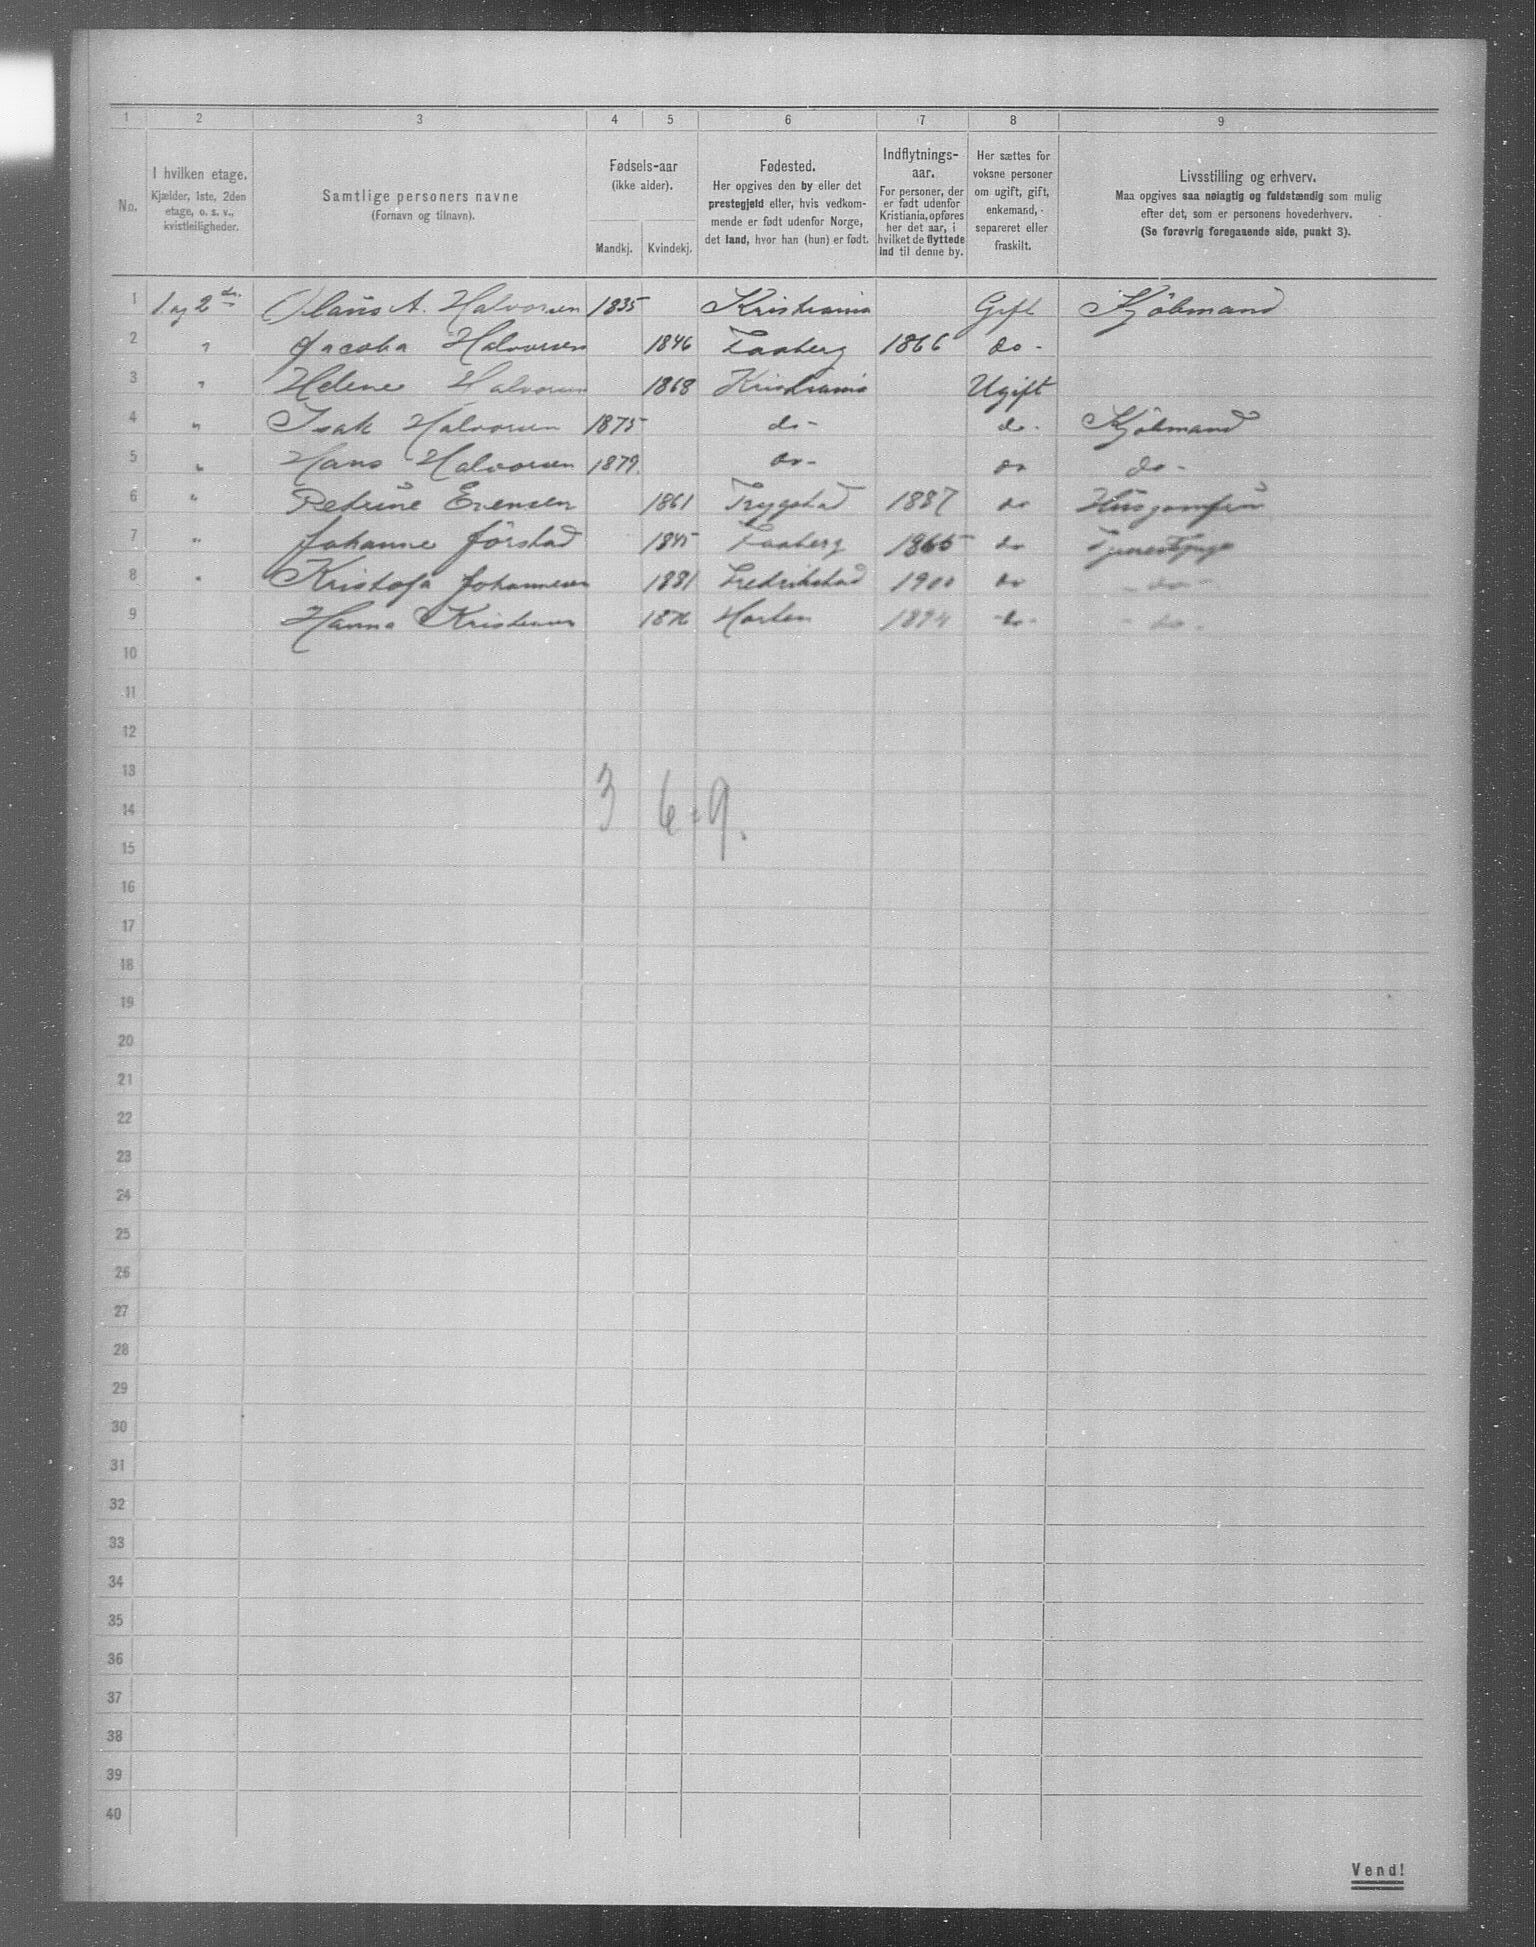 1 2 3 4 5 6 7 8 9
No.
I hvilken etage.
Kjælder, 1ste, 2den
etage, o. s. v.,
kvistleiligheder.
Samtlige personers navne
(Fornavn og tilnavn).
Fødsels-aar
(ikke alder).
Mandkj. Kvindekj.
Fødested.
Her opgives den by eller det
prestegjeld eller, hvis vedkom-
mende er født udenfor Norge,
det land, hvor han (hun) er født.
Indflytnings-
aar.
For personer, der
er født udenfor
Kristiania, opføres
her det aar, i
hvilket de flyttede
ind til denne by.
Her sættes for
voksne personer
om ugift, gift,
enkemand,
separeret eller
fraskilt.
Livsstilling og erhverv.
Maa opgives saa nøiagtig og fuldstændig som mulig
efter det, som er personens hovederhverv.
(Se forøvrig foregaaende side, punkt 3).
1 1 og 2 Olaus A. Halvorsen 1835 Kristiania Gift Kjöbmand
2 " Jacoba Halvorsen 1846 Faaberg 1866 do-
3 " Helene Halvorsen 1868 Kristiania Ugift
4 " Isak Halvorsen 1875 do- do- Kjöbmand
5 " Hans Halvorsen 1879 do- do do-
6 " Petrine Evensen 1861 Trygstad 1887 do Husjomfru
7 " Johanne Jörstad 1845 Faaberg 1865 do Tjenestepige
8 " Kristofa Johannesen 1881 Fredrikstad 1900 do - do -
9 Hanna Kristensen 1876 Horten 1894 - do - - do -
10
11
12
13
14 3 6 - 9.
15
16
17
18
19
20
21
22
23
24
25
26
27
28
29
30
31
32
33
34
35
36
37
38
39
40
Vend!